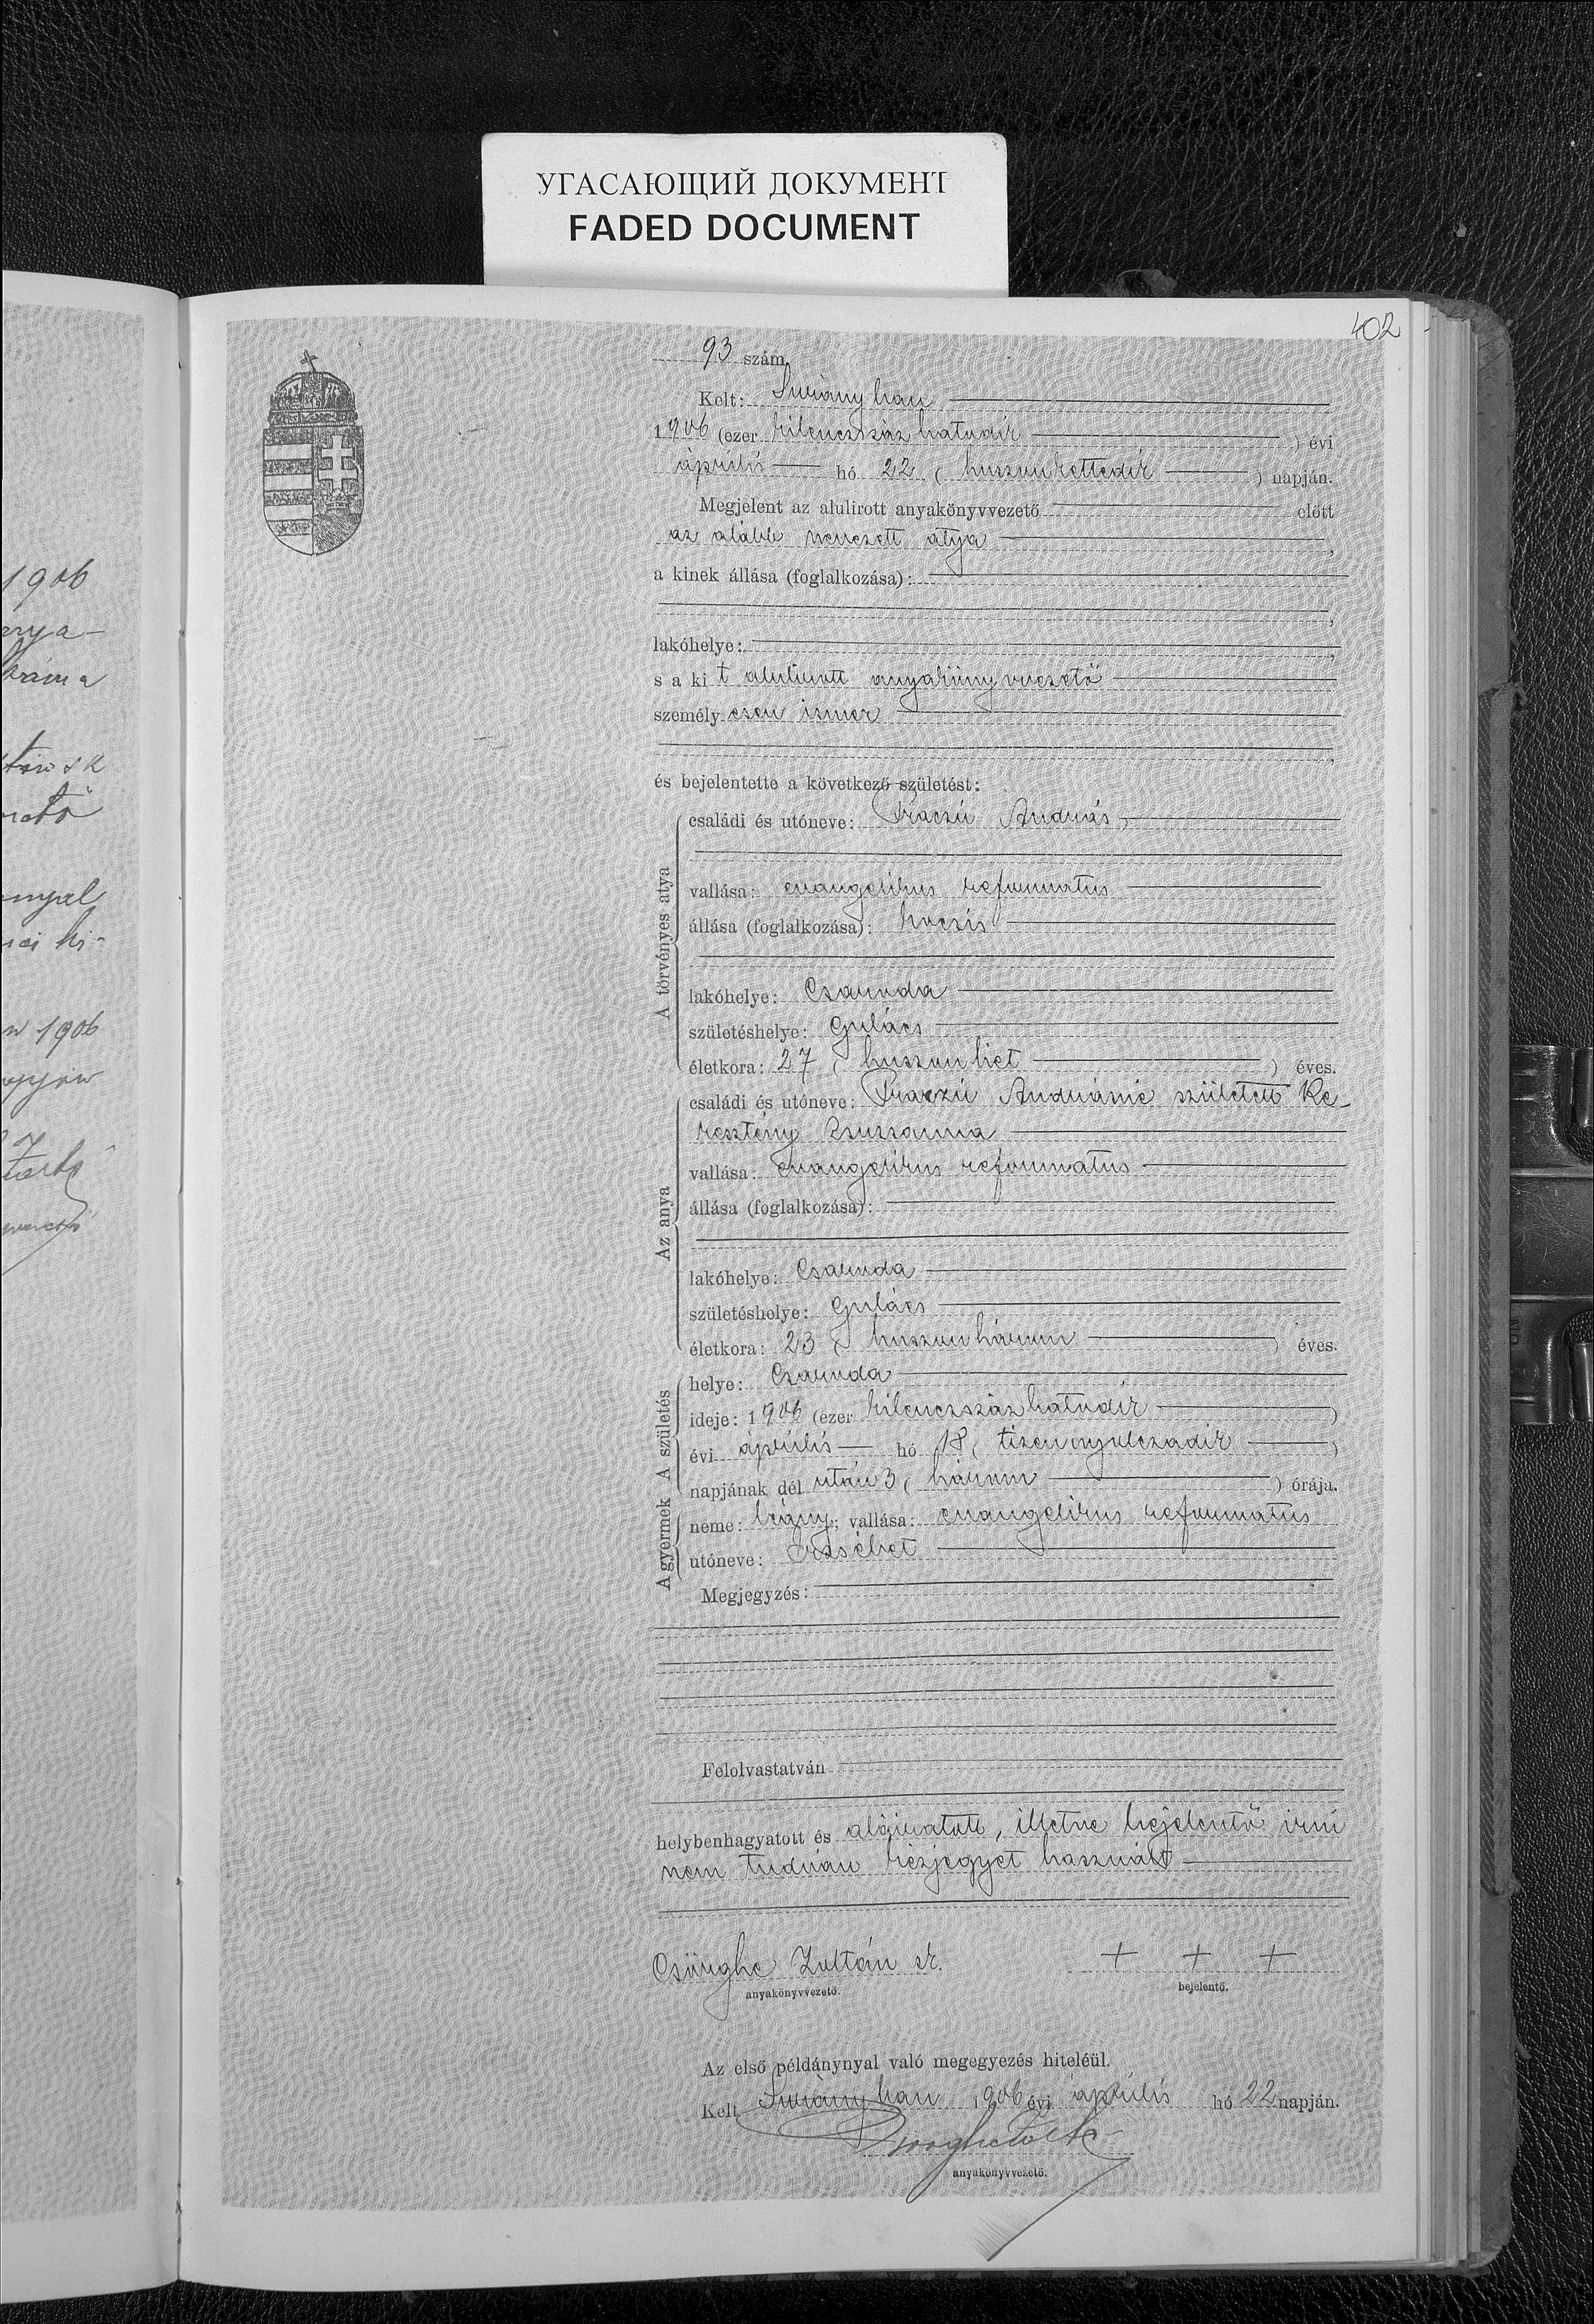 УГАСАЮЩИЙ ДОКУМЕНТ
FADED DOCUMENT
402
93 szám.
Kelt: Surányban
1906 (ezer kilenczszáz hatodik) évi
április hó 22 (huszonkettedik) napján.
Megjelent az alulirott anyakönyvvezető előtt
az alább nevezett atya,
a kinek állása (foglalkozása):
lakóhelye:
s a kit alulirott anyakönyvvezető
személyesen ismer
és bejelentette a következő születést:
A törvényes atya
családi és utóneve: András
vallása: evangelikus reformatus
állása (foglalkozása): kocsis
lakóhelye: Csaroda
születéshelye: Gulács
életkora: 27 (huszonhét) éves.
Az anya
családi és utóneve: Andrásné született Ke
resztény Zsuzsanna
vallása: evangelikus reformatus
állása (foglalkozása):
lakóhelye: Csaroda
születéshelye: Gulács
életkora: 23 (huszonhárom) éves.
A születés
helye: Csaroda
ideje: 1906 (ezer kilenczszázhatodik)
évi április hó 18 (tizennyolczadik)
napjának dél után 3 (három) órája.
A gyermek
neme: leány; vallása: evangelikus reformatus
utóneve: Erzsébet
Megjegyzés:
Felolvastatván
helybenhagyatott és aláiratott, illetve bejelentő irni
nem tudván kézjegyet használt
Csörghe Zoltán sk.
anyakönyvvezető.
+ + +
bejelentő.
Az első példánynyal való megegyezés hiteléül.
Kelt Surányban 1906 évi április hó 22 napján.
anyakönyvvezető.
1906